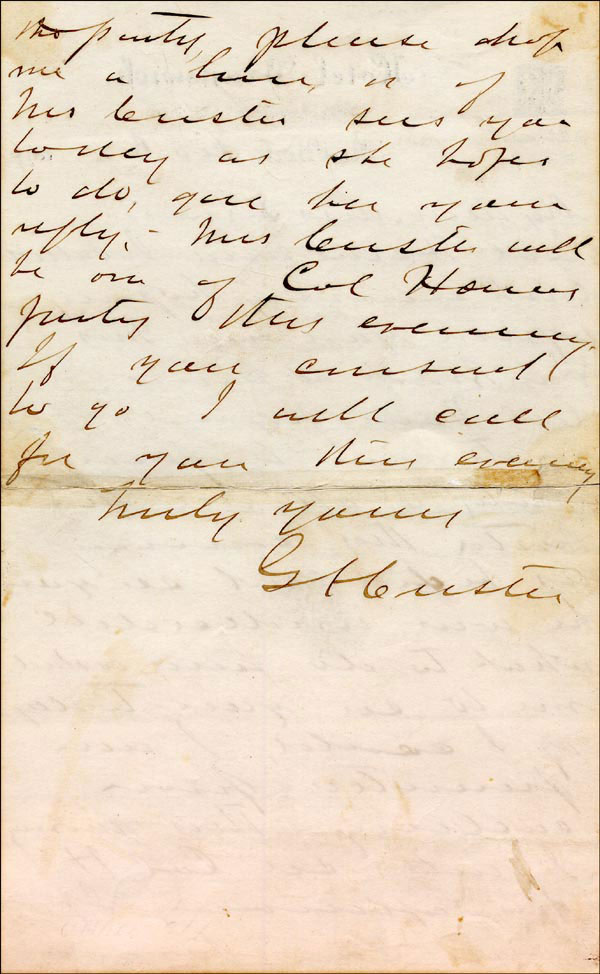 the party, please drop
me a line, or if
Mrs Custer sees you
today as she hopes
to do, give her your
reply. - Mrs Custer will
be one of Col Howes
party this evening.
If you consent
to go I will call
for you this evening
Truly yours
G A Custer